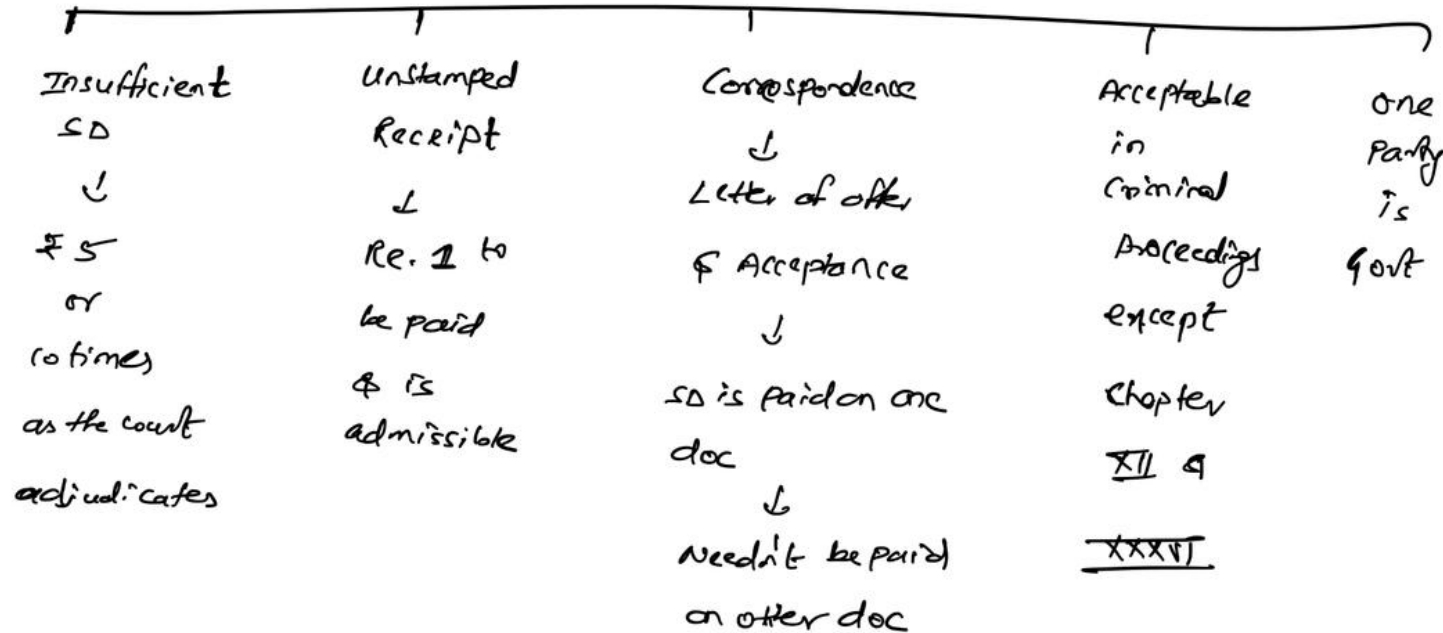 Insufficient
SD
↓
₹5
or
10 times
as the court
adjudicates
Unstamped
Receipt
↓
Re. 1 to
be paid
& is
admissible
Correspondence
↓
Letter of offer
& Acceptance
↓
SD is paid on one
doc
↓
Needn't be paid
on other doc
Acceptable
in
Criminal
Proceedings
except
Chapter
XII &
XXXVI
one
Party
is
Govt